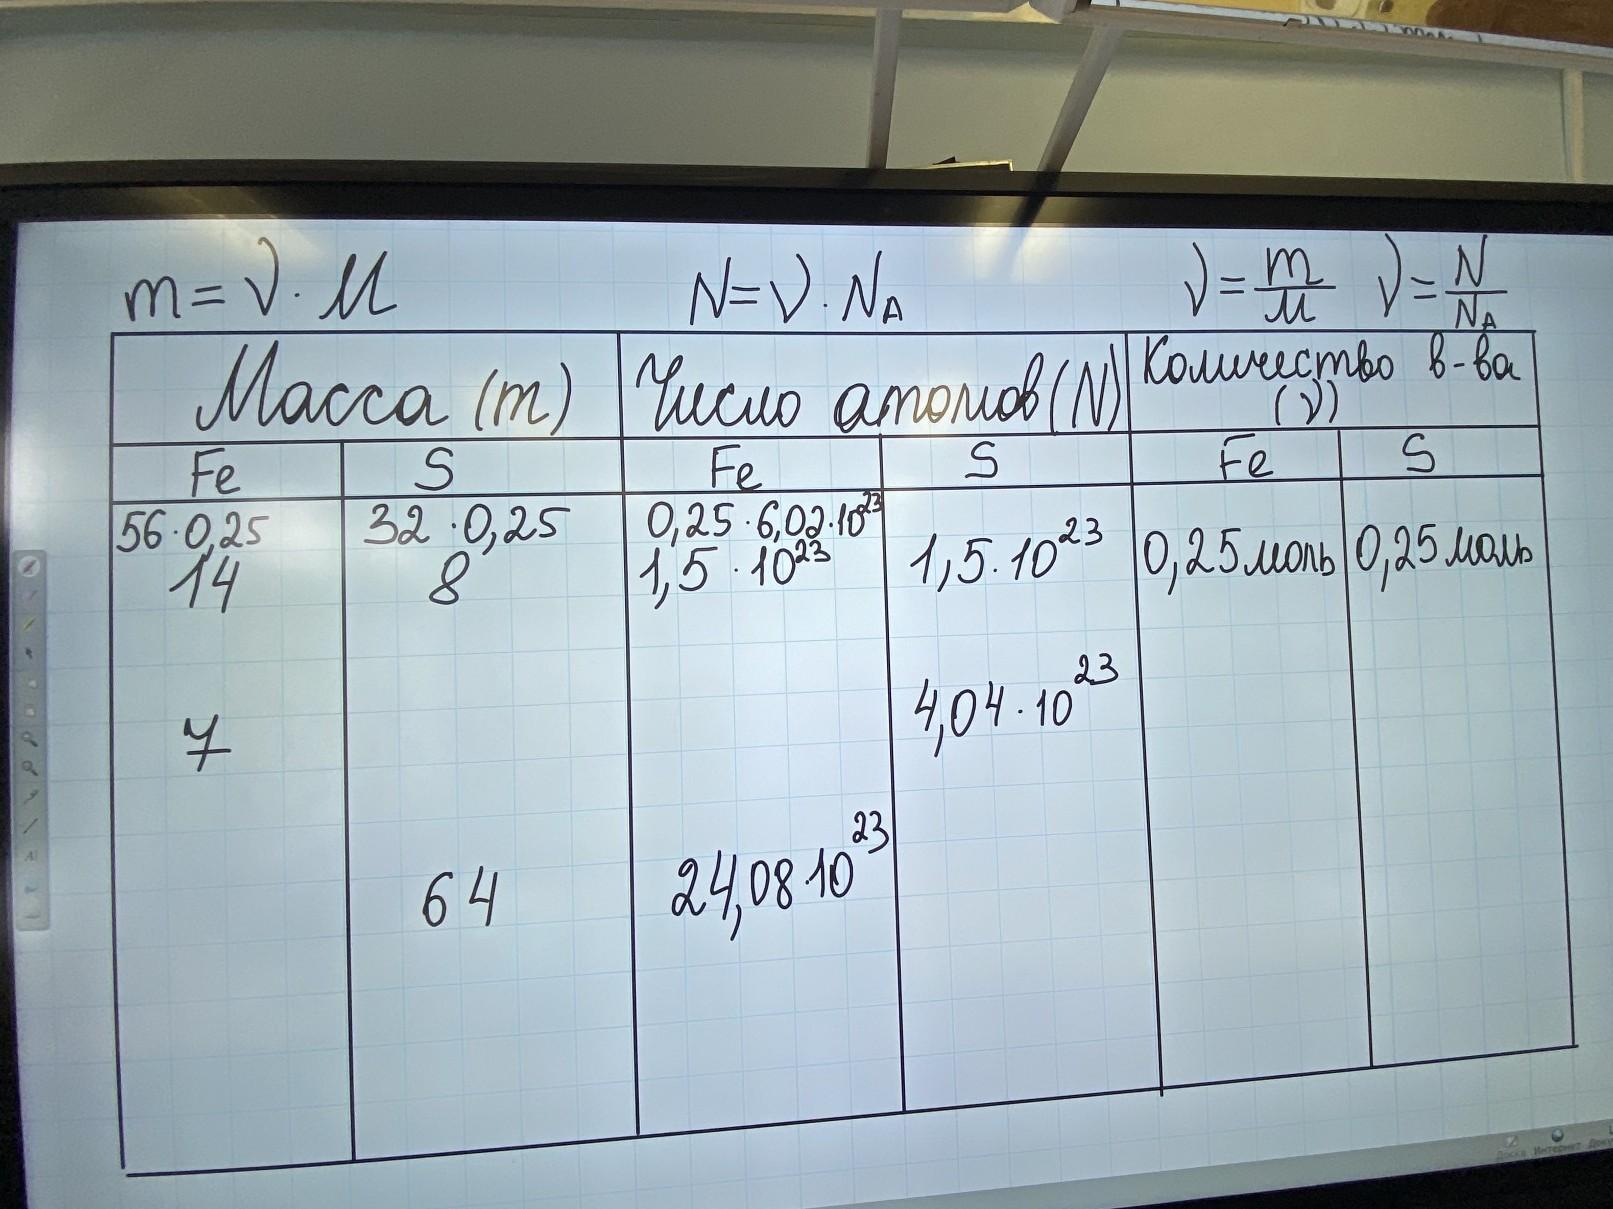 m = ν · M
N = ν · N_A
ν = m/M ν = N/N_A
Масса (m)
Число атомов (N)
Количество в-ва (ν)
Fe S Fe S Fe S
56·0,25 32·0,25 0,25·6,02·10²³
14 8 1,5·10²³ 1,5·10²³ 0,25моль 0,25моль
7 4,04·10²³
64 24,08·10²³
Доска Интернет